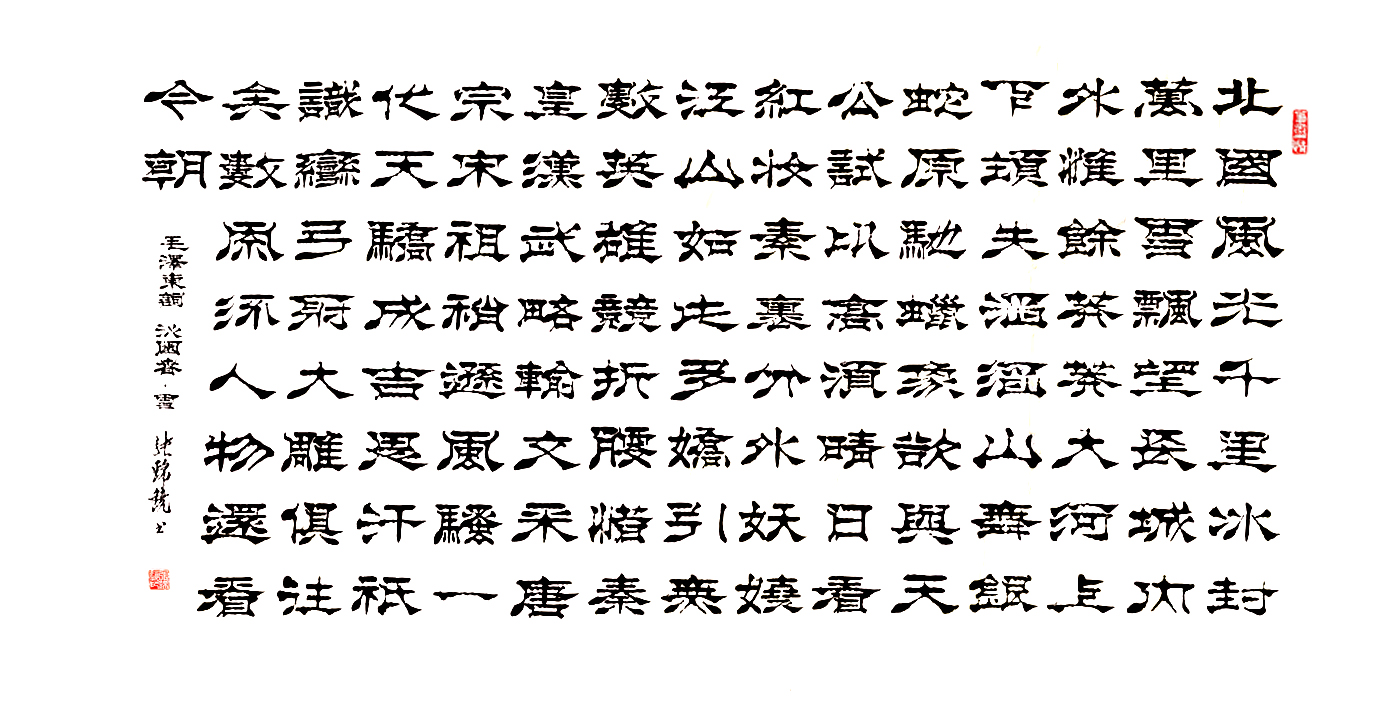 北國風光千里冰封
萬里雪飄望長城內
外惟餘莽莽大河上
下頓失滔滔山舞銀
蛇原馳蠟象欲與天
公試比高須晴日看
紅妝素裹分外妖嬈
江山如此多嬌引無
數英雄競折腰惜秦
皇漢武略輸文采唐
宗宋祖稍遜風騷一
代天驕成吉思汗祇
識彎弓射大雕俱往
矣數風流人物還看
今朝
毛澤東詞 沁園春·雪